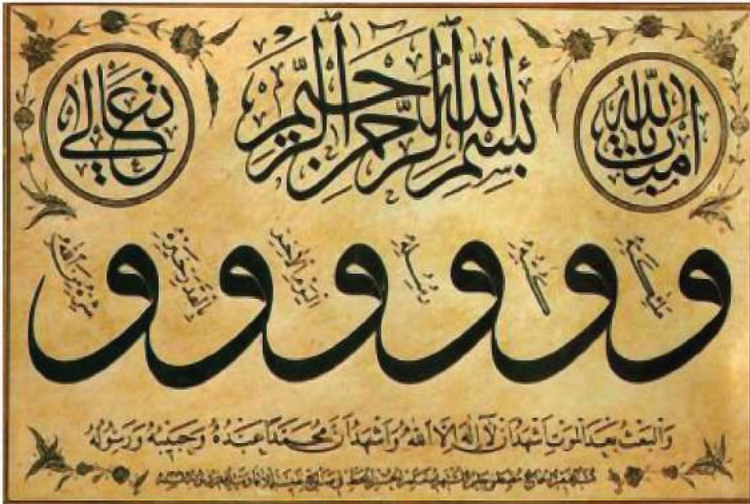 آمنت بالله
بسم الله الرحمن الرحيم
تعالى
و ملئكته و كتبه و رسله و اليوم الآخر و بالقدر خيره و شره من الله
والبعث بعد الموت اشهد ان لا اله الا الله واشهد ان محمدا عبده وحبيبه ورسوله